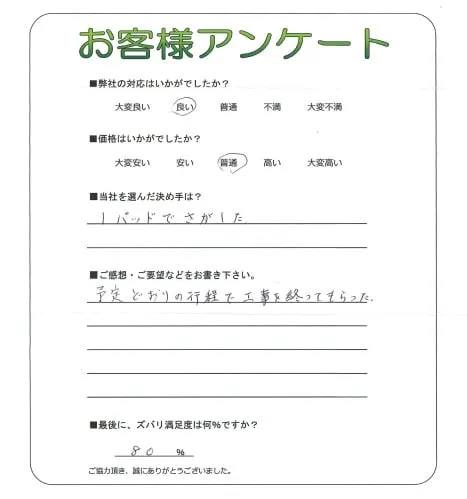 お客様アンケート
■弊社の対応はいかがでしたか？
大変良い 良い 普通 不満 大変不満
■価格はいかがでしたか？
大変安い 安い 普通 高い 大変高い
■当社を選んだ決め手は？
iパッドでさがした
■ご感想・ご要望などをお書き下さい。
予定どおりの行程で工事を終ってもらった.
■最後に、ズバリ満足度は何%ですか？
80 %
ご協力頂き、誠にありがとうございました。